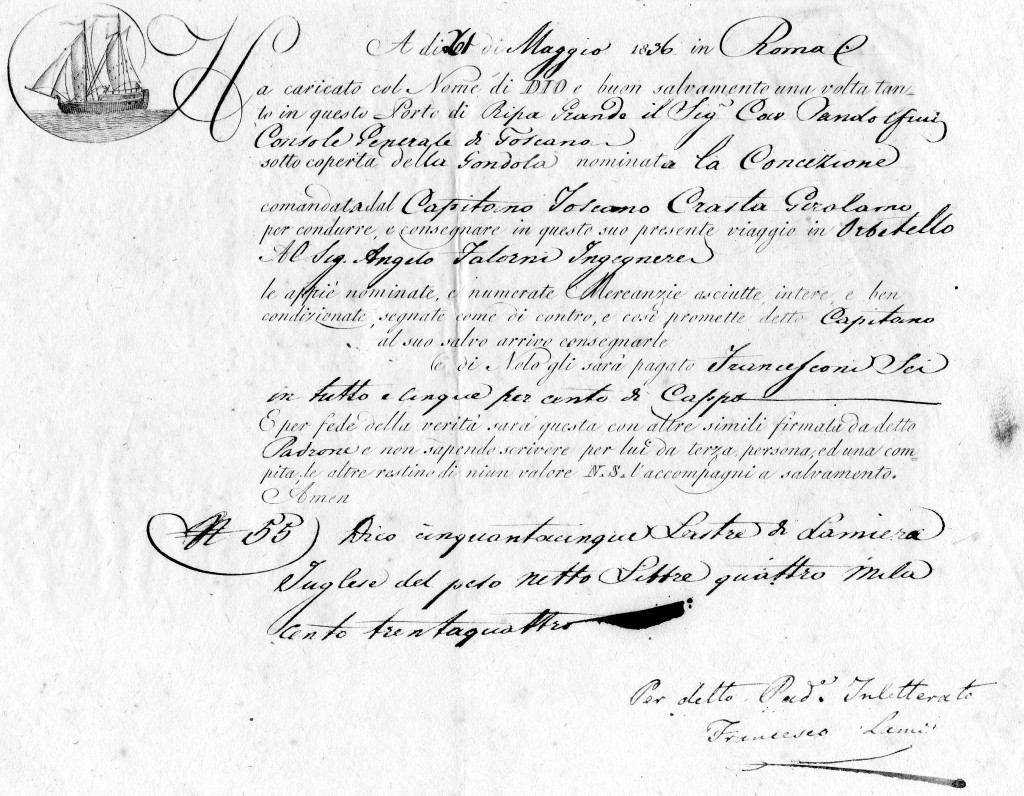 A di di Maggio 1836 in Roma
Ha caricato col Nome di DIO e buon salvamento una volta tan-
to in questo Porto di Ripa Grande il Sig.r Cav Pandolfini
Console Generale di Toscana
sotto coperta della Gondola nominata la Concezione
comandata dal Capitano Toscano Crasta Girolamo
per condurre, e consegnare in questo suo presente viaggio in Orbetello
Al Sig. Angelo Ingegnere
le appiè nominate, e numerate Mercanzie asciutte, intere, e ben
condizionate, segnate come di contro, e così promette detto Capitano
al suo salvo arrivo consegnarle
e di Nolo gli sarà pagato Francesconi Sei
in tutto e cinque per cento di Cappa
E per fede della verità sarà questa con altre simili firmata da detto
Padrone e non sapendo scrivere per lui da terza persona, ed una com-
pita, le altre restino di niun valore N.S. l'accompagni a salvamento.
Amen
N 55 Dico cinquantacinque Lastre di Lamiera
Inglese del peso netto Libbre quattro mila
cento trentaquattro
Per detto Pad.e Inletterato
Francesco Lami